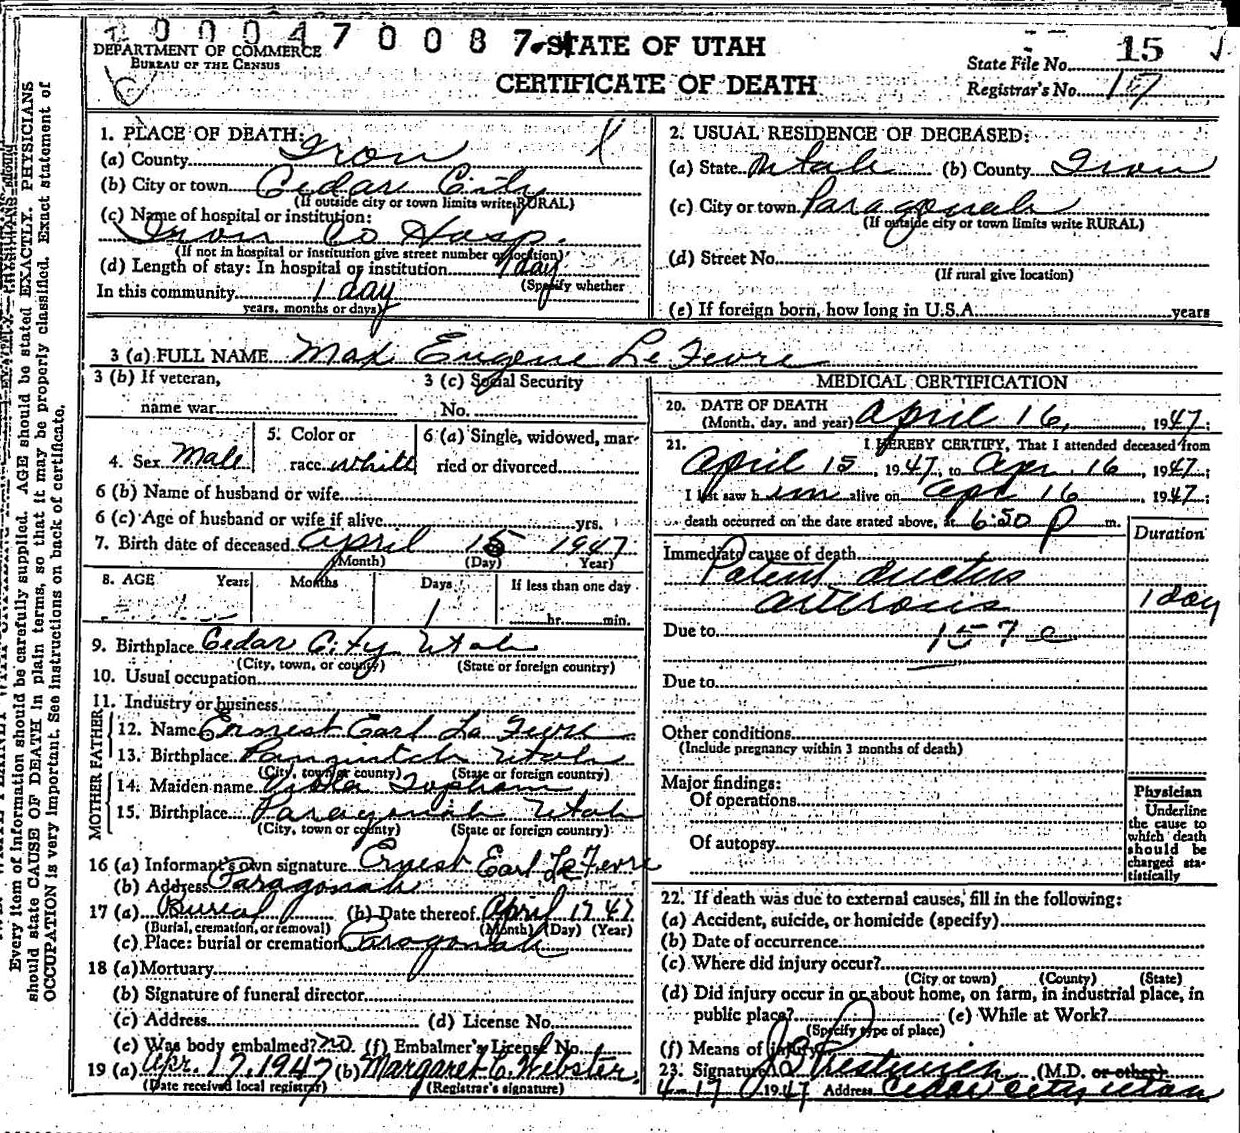 0 0 0 4 7 0 0 8 7
DEPARTMENT OF COMMERCE
BUREAU OF THE CENSUS
STATE OF UTAH
CERTIFICATE OF DEATH
State File No. 15
Registrar's No. 107
1. PLACE OF DEATH:
(a) County Iron
(b) City or town Cedar City
(If outside city or town limits write RURAL)
(c) Name of hospital or institution:
Iron Co Hosp.
(If not in hospital or institution give street number or location)
(d) Length of stay: In hospital or institution 1 day
(Specify whether
In this community 1 day
years, months or days)
2. USUAL RESIDENCE OF DECEASED:
(a) State Utah (b) County Iron
(c) City or town Paragonah
(If outside city or town limits write RURAL)
(d) Street No.
(If rural give location)
(e) If foreign born, how long in U.S.A. years
3 (a) FULL NAME Max Eugene LeFevre
3 (b) If veteran,
name war
3 (c) Social Security
No.
4. Sex Male
5. Color or
race white
6 (a) Single, widowed, mar-
ried or divorced
6 (b) Name of husband or wife
6 (c) Age of husband or wife if alive yrs.
7. Birth date of deceased April 15 1947
(Month) (Day) Year)
8. AGE Years Months Days If less than one day
1 hr. min.
9. Birthplace Cedar City Utah
(City, town, or county) (State or foreign country)
10. Usual occupation
11. Industry or business
FATHER
12. Name Ernest Earl LeFevre
13. Birthplace Panguitch Utah
(City, town or county) (State or foreign country)
MOTHER
14. Maiden name Topham
15. Birthplace Paragonah Utah
(City, town or county) (State or foreign country)
16 (a) Informant's own signature Ernest Earl LeFevre
(b) Address Paragonah
17 (a) Burial (b) Date thereof April 17 47
(Burial, cremation, or removal) (Month) (Day) (Year)
(c) Place: burial or cremation Paragonah
18 (a) Mortuary
(b) Signature of funeral director
(c) Address (d) License No.
(e) Was body embalmed? no. (f) Embalmer's License No.
19 (a) Apr. 17, 1947 (b) Margaret C. Webster
(Date received local registrar) (Registrar's signature)
MEDICAL CERTIFICATION
20. DATE OF DEATH
(Month, day, and year) April 16, 1947;
21. I HEREBY CERTIFY, That I attended deceased from
April 15, 1947, to Apr. 16 1947;
I last saw him alive on Apr 16 1947;
death occurred on the date stated above, at 6:50 p m.
Duration
Immediate cause of death
Patent ductus
arterosis 1 day
Due to 157 e
Due to
Other conditions
(Include pregnancy within 3 months of death)
Major findings:
Of operations
Of autopsy
Physician
Underline
the cause to
which death
should be
charged sta-
tistically
22. If death was due to external causes, fill in the following:
(a) Accident, suicide, or homicide (specify)
(b) Date of occurrence
(c) Where did injury occur?
(City or town) (County) (State)
(d) Did injury occur in or about home, on farm, in industrial place, in
public place? (e) While at Work?
(Specify type of place)
(f) Means of injury
23. Signature (M.D. or other)
4-17 1947 Address Cedar City, Utah
Every item of information should be carefully supplied. AGE should be stated EXACTLY. PHYSICIANS
should state CAUSE OF DEATH in plain terms, so that it may be properly classified. Exact statement of
OCCUPATION is very important. See instructions on back of certificate.